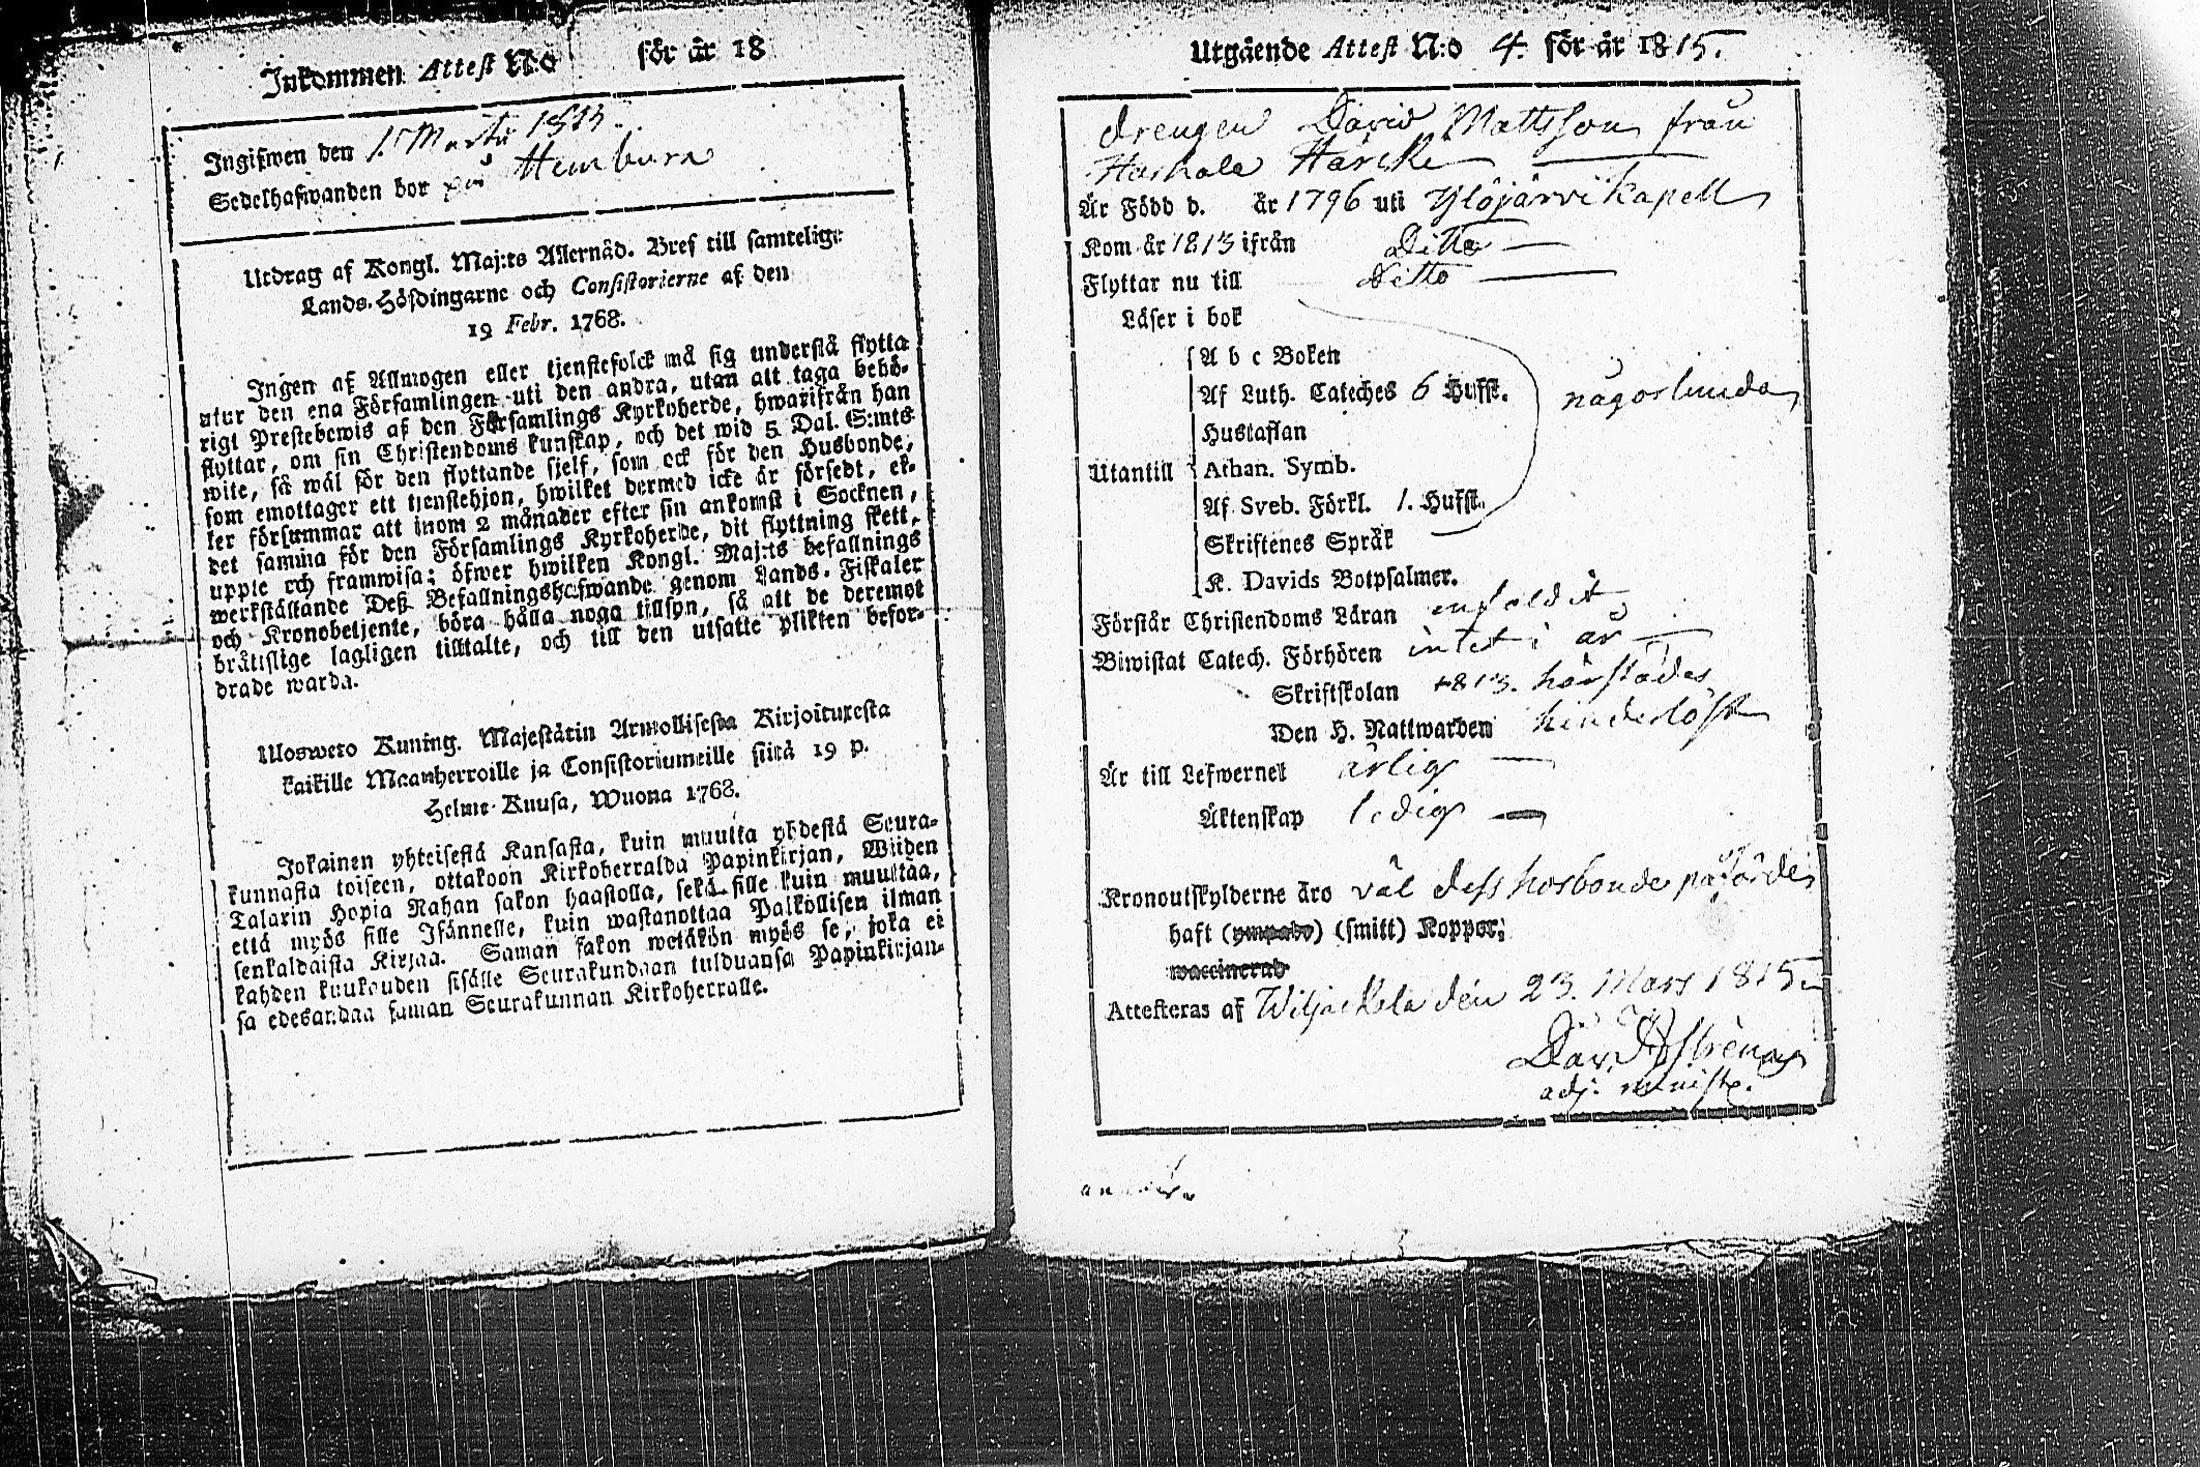 Inkommen Attest N:o för år 18
Ingifwen den 1. Martii
Sedelhafwanden bor på
Utdrag af Kongl. Maj:ts Allernåd. Bref till samtelige
Lands-Höfdingarne och Consistorierne af den
19 Febr. 1768.
Ingen af Allmogen eller tjenstefolck må sig understå flytta
utur den ena Församlingen uti den andra, utan att taga behö-
rigt Prestebewis af den Församlings Kyrkoherde, hwarifrån han
flyttar, om sin Christendoms kunskap, och det wid 5 Dal. S:mts
wite, så wäl för den flyttande sjelf, som ock för den Husbonde,
som emottager ett tjenstehjon, hwilket dermed icke är försedt, el-
ler försummar att inom 2 månader efter sin ankomst i Socknen,
det samma för den Församlings Kyrkoherde, dit flyttning skett,
uppte och framwisa; öfwer hwilken Kongl. Maj:ts befallnings
werkställande Deß Befallningshafwande genom Lands-Fiskaler
och Kronobetjente, böra hålla noga tillsyn, så att de deremot
bråttslige lagligen tilltalte, och till den utsatte plikten befor-
drade warda.
Uloswero Kuning. Majestätin Armollisesta Kirjoituxesta
kaikille Maanherroille ja Consistoriumeille siitä 19 p.
Helme-Kuusa, Wuona 1768.
Jokainen yhteisestä Kansasta, kuin muutta yhdestä Seura-
kunnasta toiseen, ottakoon Kirkoherralda Papinkirjan, Wiiden
Talarin Hopia Rahan sakon haastolla, sekä sille kuin muuttaa,
että myös sille Isännelle, kuin wastanottaa Palkollisen ilman
senkaldaista Kirjaa. Saman sakon wetäkön myös se, joka ei
kahden kuukauden sisälle Seurakundaan tulduansa Papinkirjan-
sa edesandaa saman Seurakunnan Kirkoherralle.
Utgående Attest N:o 4. för år 1815.
drengen David Mattsson från
Härcke
Är Född d. år 1796 uti Ylöjärvi Kapell
Kom år 1813 ifrån Ditto
Flyttar nu till Ditto
Läser i bok
A b c Boken
Af Luth. Cateches 6 Hufst. någorlunda
Hustaflan
Utantill Athan. Symb.
Af Sveb. Förkl. 1. Hufst.
Skriftenes Språk
K. Davids Botpsalmer.
Förstår Christendoms Läran enfaldigt
Biwistat Catech. Förhören intet i år
Skriftskolan 1813. härstädes
Den H. Nattwarden hinderlöst
Är till Lefwernet ärlig
Äktenskap ledig
Kronoutskylderne äro väl dess husbonde påförde
haft (ympade) (smitt) Koppor;
waccinerad
Attesteras af Wiljackala den 23. Mars 1815
adj. ministr.